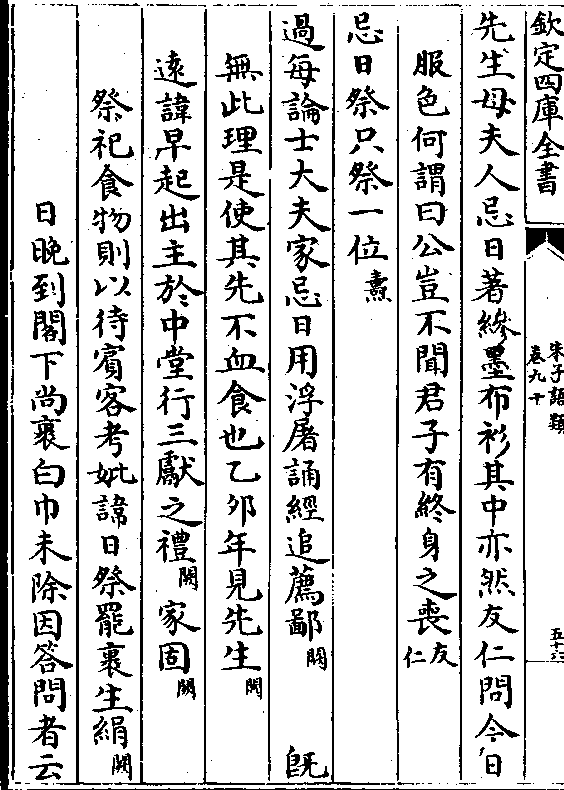 欽定四庫全書
朱子語類
卷九十
五十六
先生母夫人忌日著縿墨布衫其中亦然友仁問今日
服色何謂曰公豈不聞君子有終身之喪友仁
忌日祭只祭一位燾
過每論士大夫家忌日用浮屠誦經追薦鄙闕既
無此理是使其先不血食也乙卯年見先生闕
遠諱早起出主於中堂行三獻之禮闕家固闕
祭祀食物則以待賓客考妣諱日祭罷裹生絹闕
日晚到閣下尚裹白巾未除因答問者云